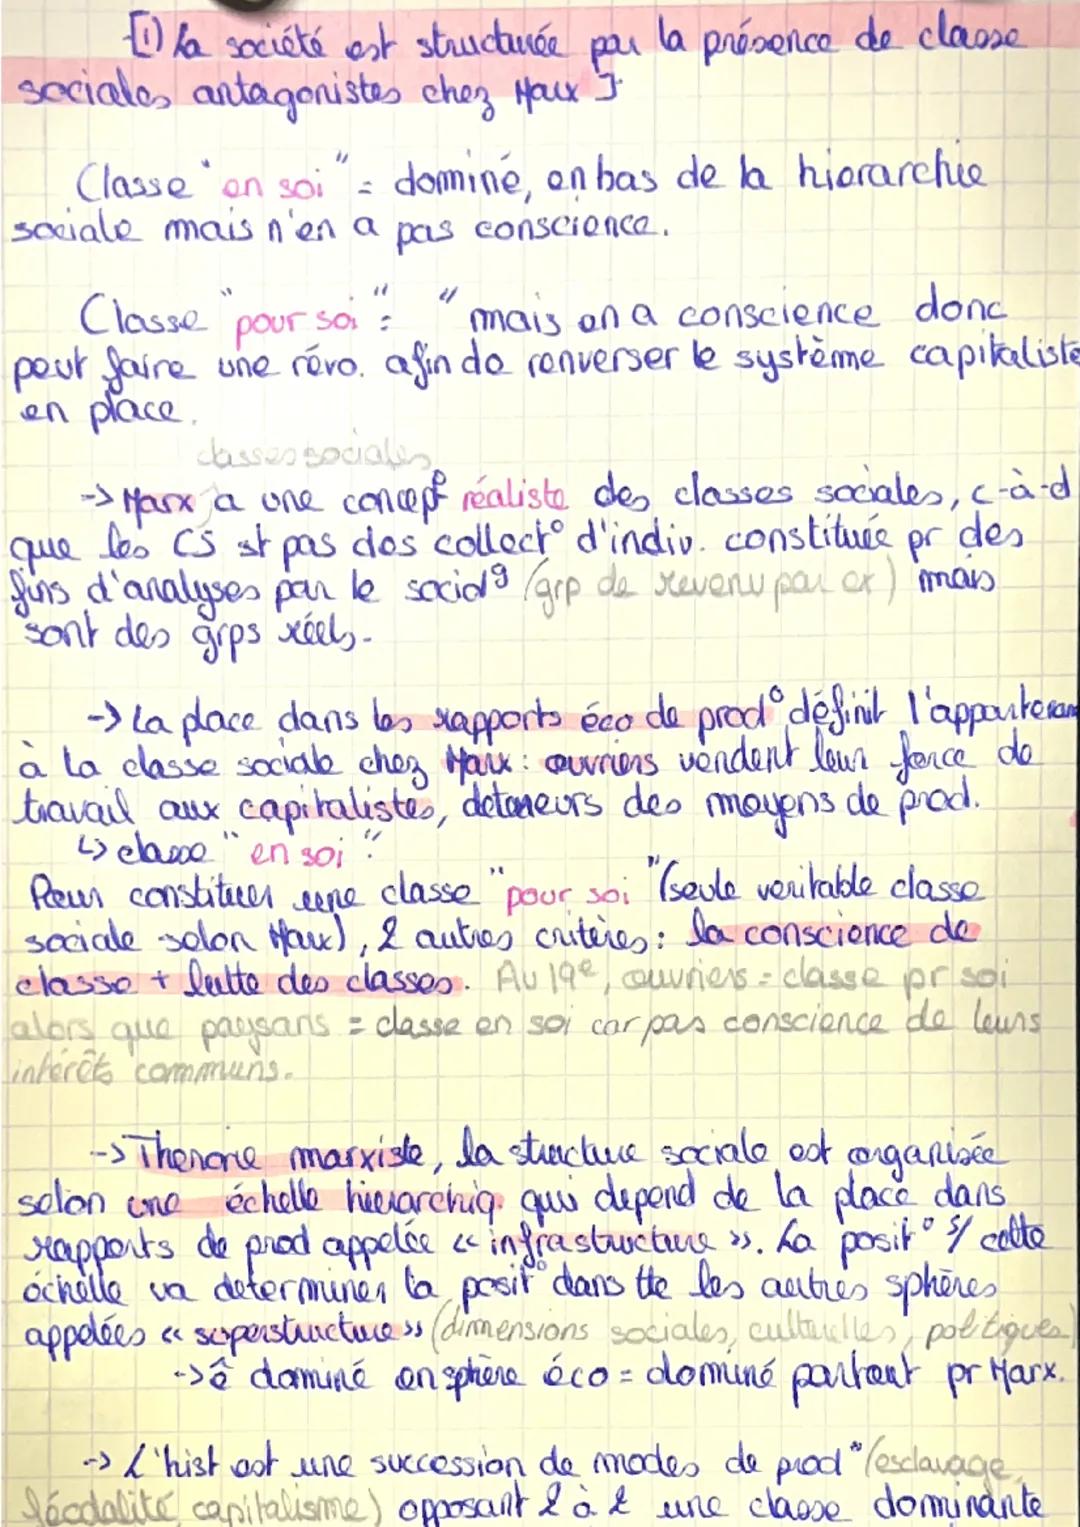 [1) La société est structurée par la présence de classe
sociales antagonistes chez Marx ]
Classe "en soi" = dominé, en bas de la hierarchie
sociale mais n'en a pas conscience.
Classe "pour soi" = " mais en a conscience donc
peut faire une révo. afin de renverser le système capitaliste
en place.
classes sociales
-> Marx a une concept° réaliste des classes sociales, c-à-d
que les CS st pas des collect° d'indiv. constituée pr des
fins d'analyses par le sociolg (grp de revenu par ex) mais
sont des grps réels.
-> La place dans les rapports éco de prod° définit l'appartenan
à la classe sociale chez Marx : ouvriers vendent leur force de
travail aux capitalistes, deteneurs des moyens de prod.
↳ classe "en soi"
Pour constituer une classe "pour soi" (seule veritable classe
sociale selon Marx), 2 autres critères : la conscience de
classe + lutte des classes. Au 19e, ouvriers = classe pr soi
alors que paysans = classe en soi car pas conscience de leurs
intérêts communs.
-> Therorie marxiste, la structure sociale est organisée
selon une échelle hierarchiq. qui depend de la place dans
rapports de prod appelée « infrastructure ». La posit° s/ cette
échelle va determiner la posit° dans tte les autres sphères
appelées « superstructure » (dimensions sociales, culturelles, politiques)
-> ê dominé en sphère éco = dominé partout pr Marx.
-> L'hist est une succession de modes de prod° (esclavage,
féodalité, capitalisme) opposant 2 à 2 une classe dominante